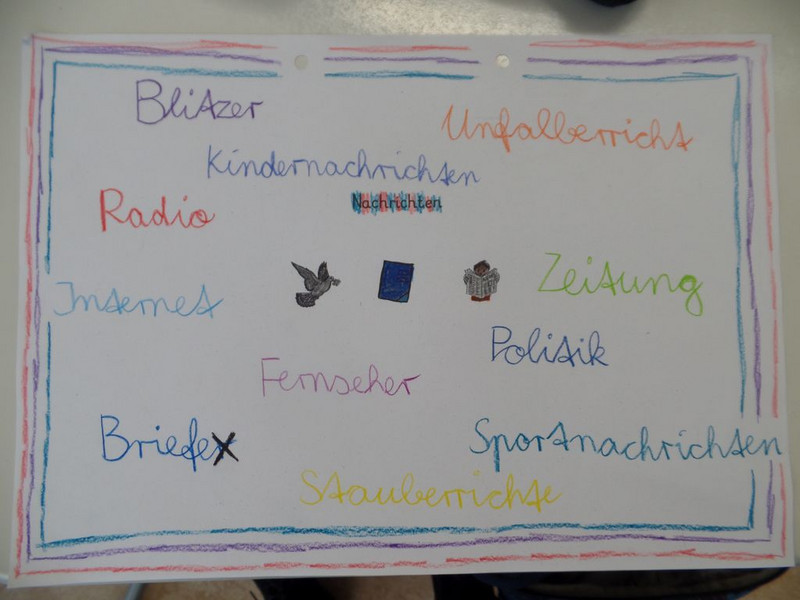 Blitzer
Unfalberricht
Kindernachrichten
Nachrichten
Radio
Internet
Zeitung
Politik
Fernseher
Briefe
Sportnachrichten
Stauberrichte